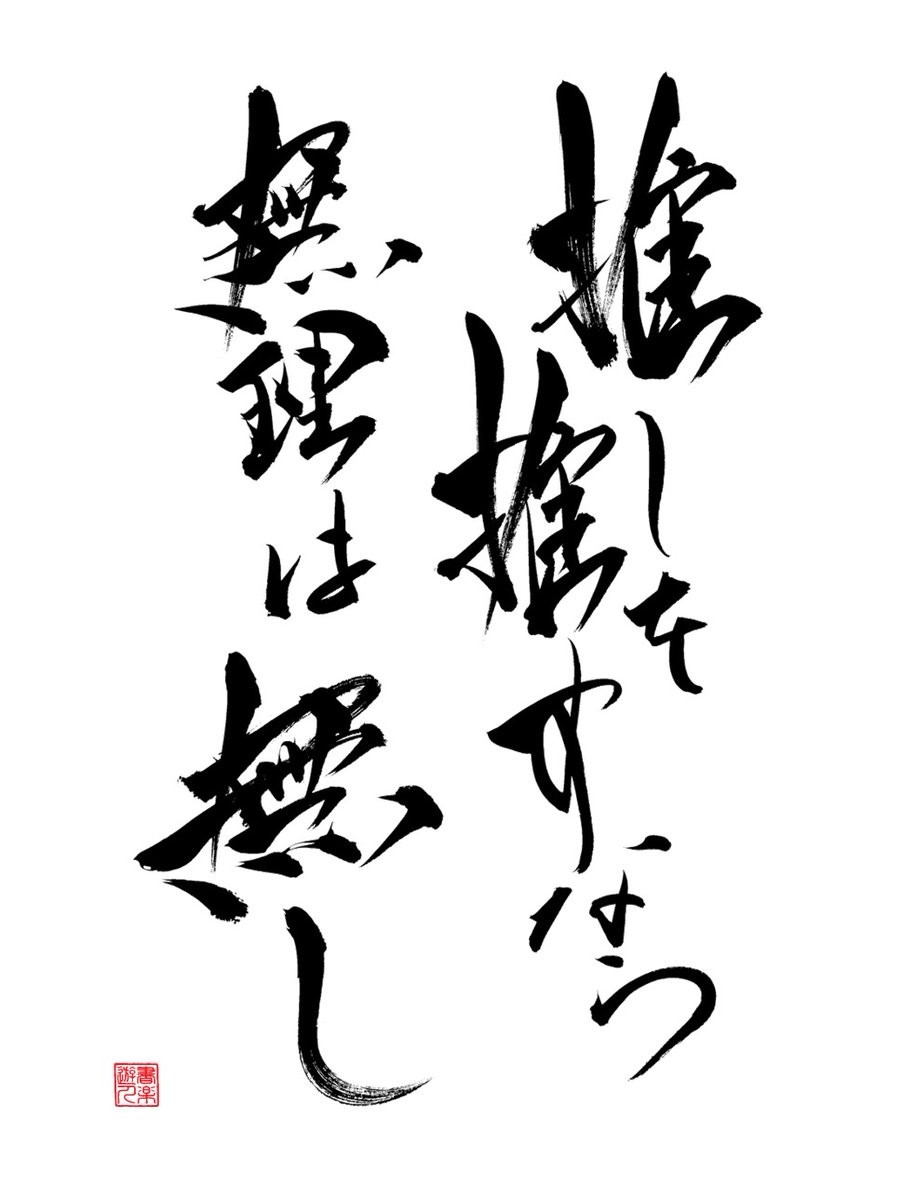 推しを
推すなら
無理は
無し
書楽
遊